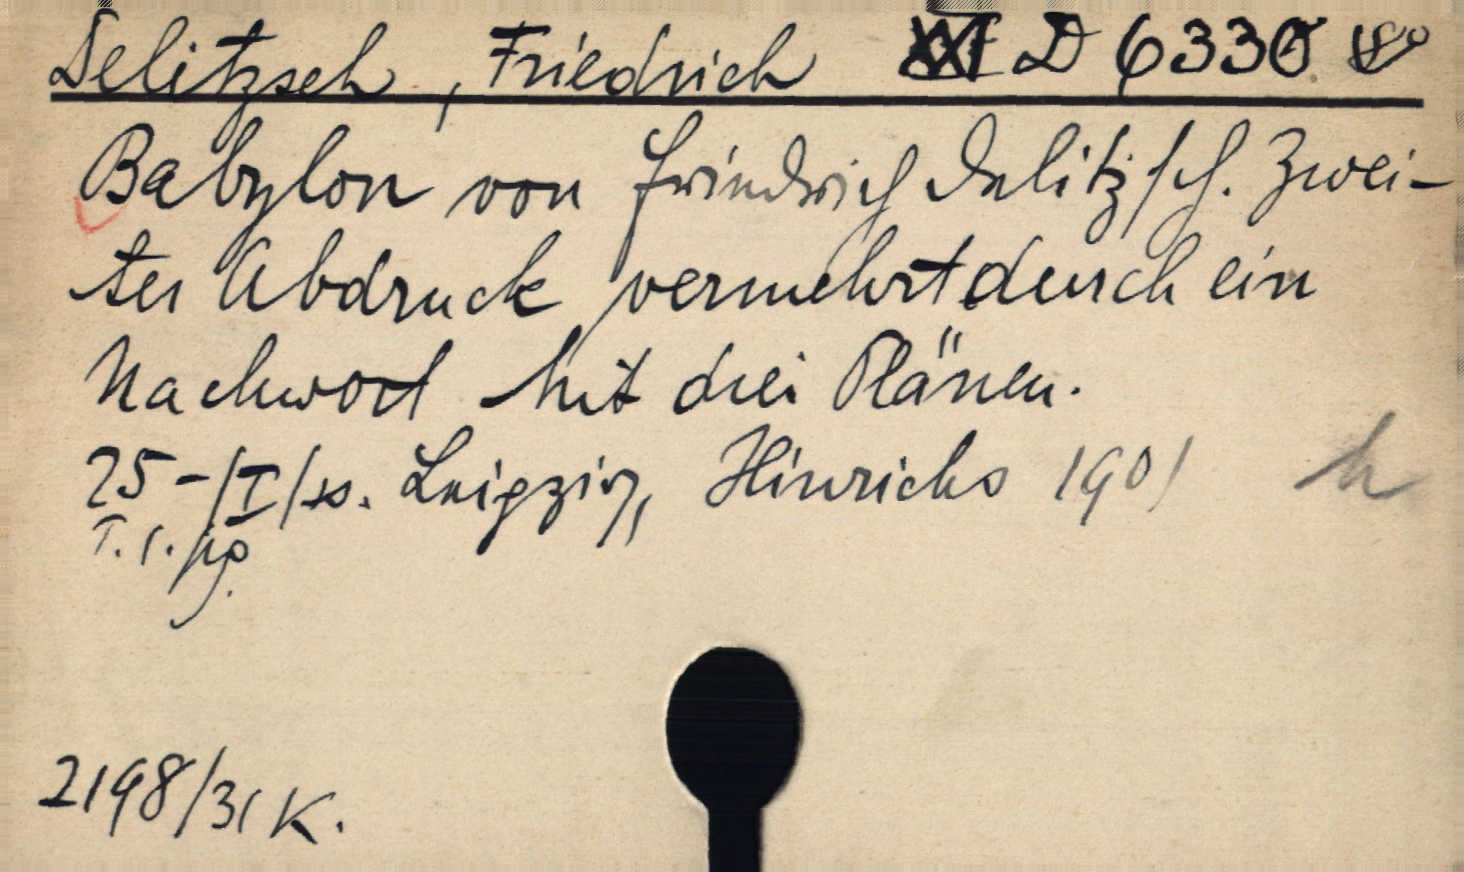 Delitzsch, Friedrich D 6330
Babylon von Friedrich Delitzsch. Zwei-
ter Abdruck vermehrt durch ein
Nachwort Mit drei Plänen.
25 - /I/ ss. Leipzig, Hinrichs 1901 h
2198/31 K.